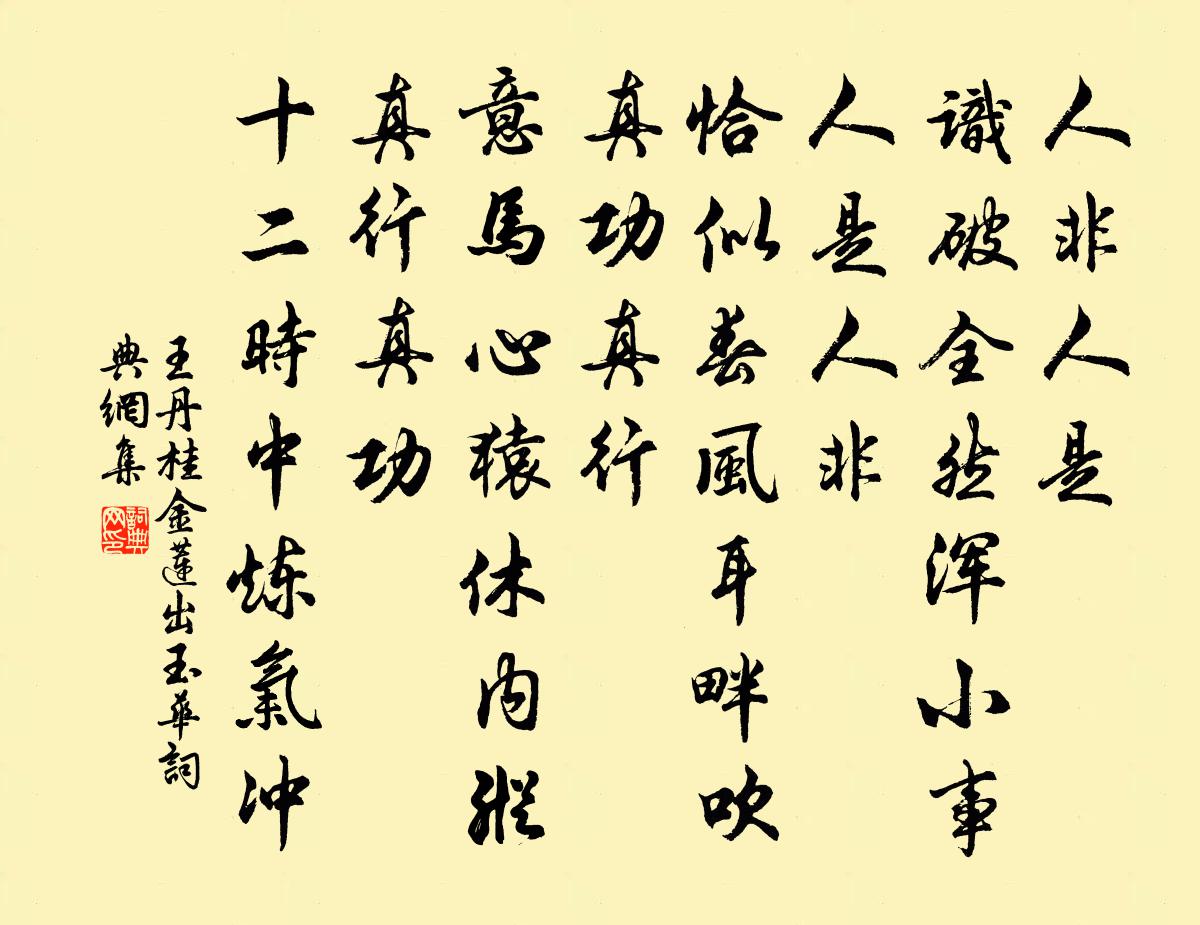 人非人是
識破全然浑小事
人是人非
恰似春風耳畔吹
真功真行
意馬心猿休内縱
真行真功
十二時中炼氣冲
王丹桂金蓮出玉華詞
典網集
詞典
网印